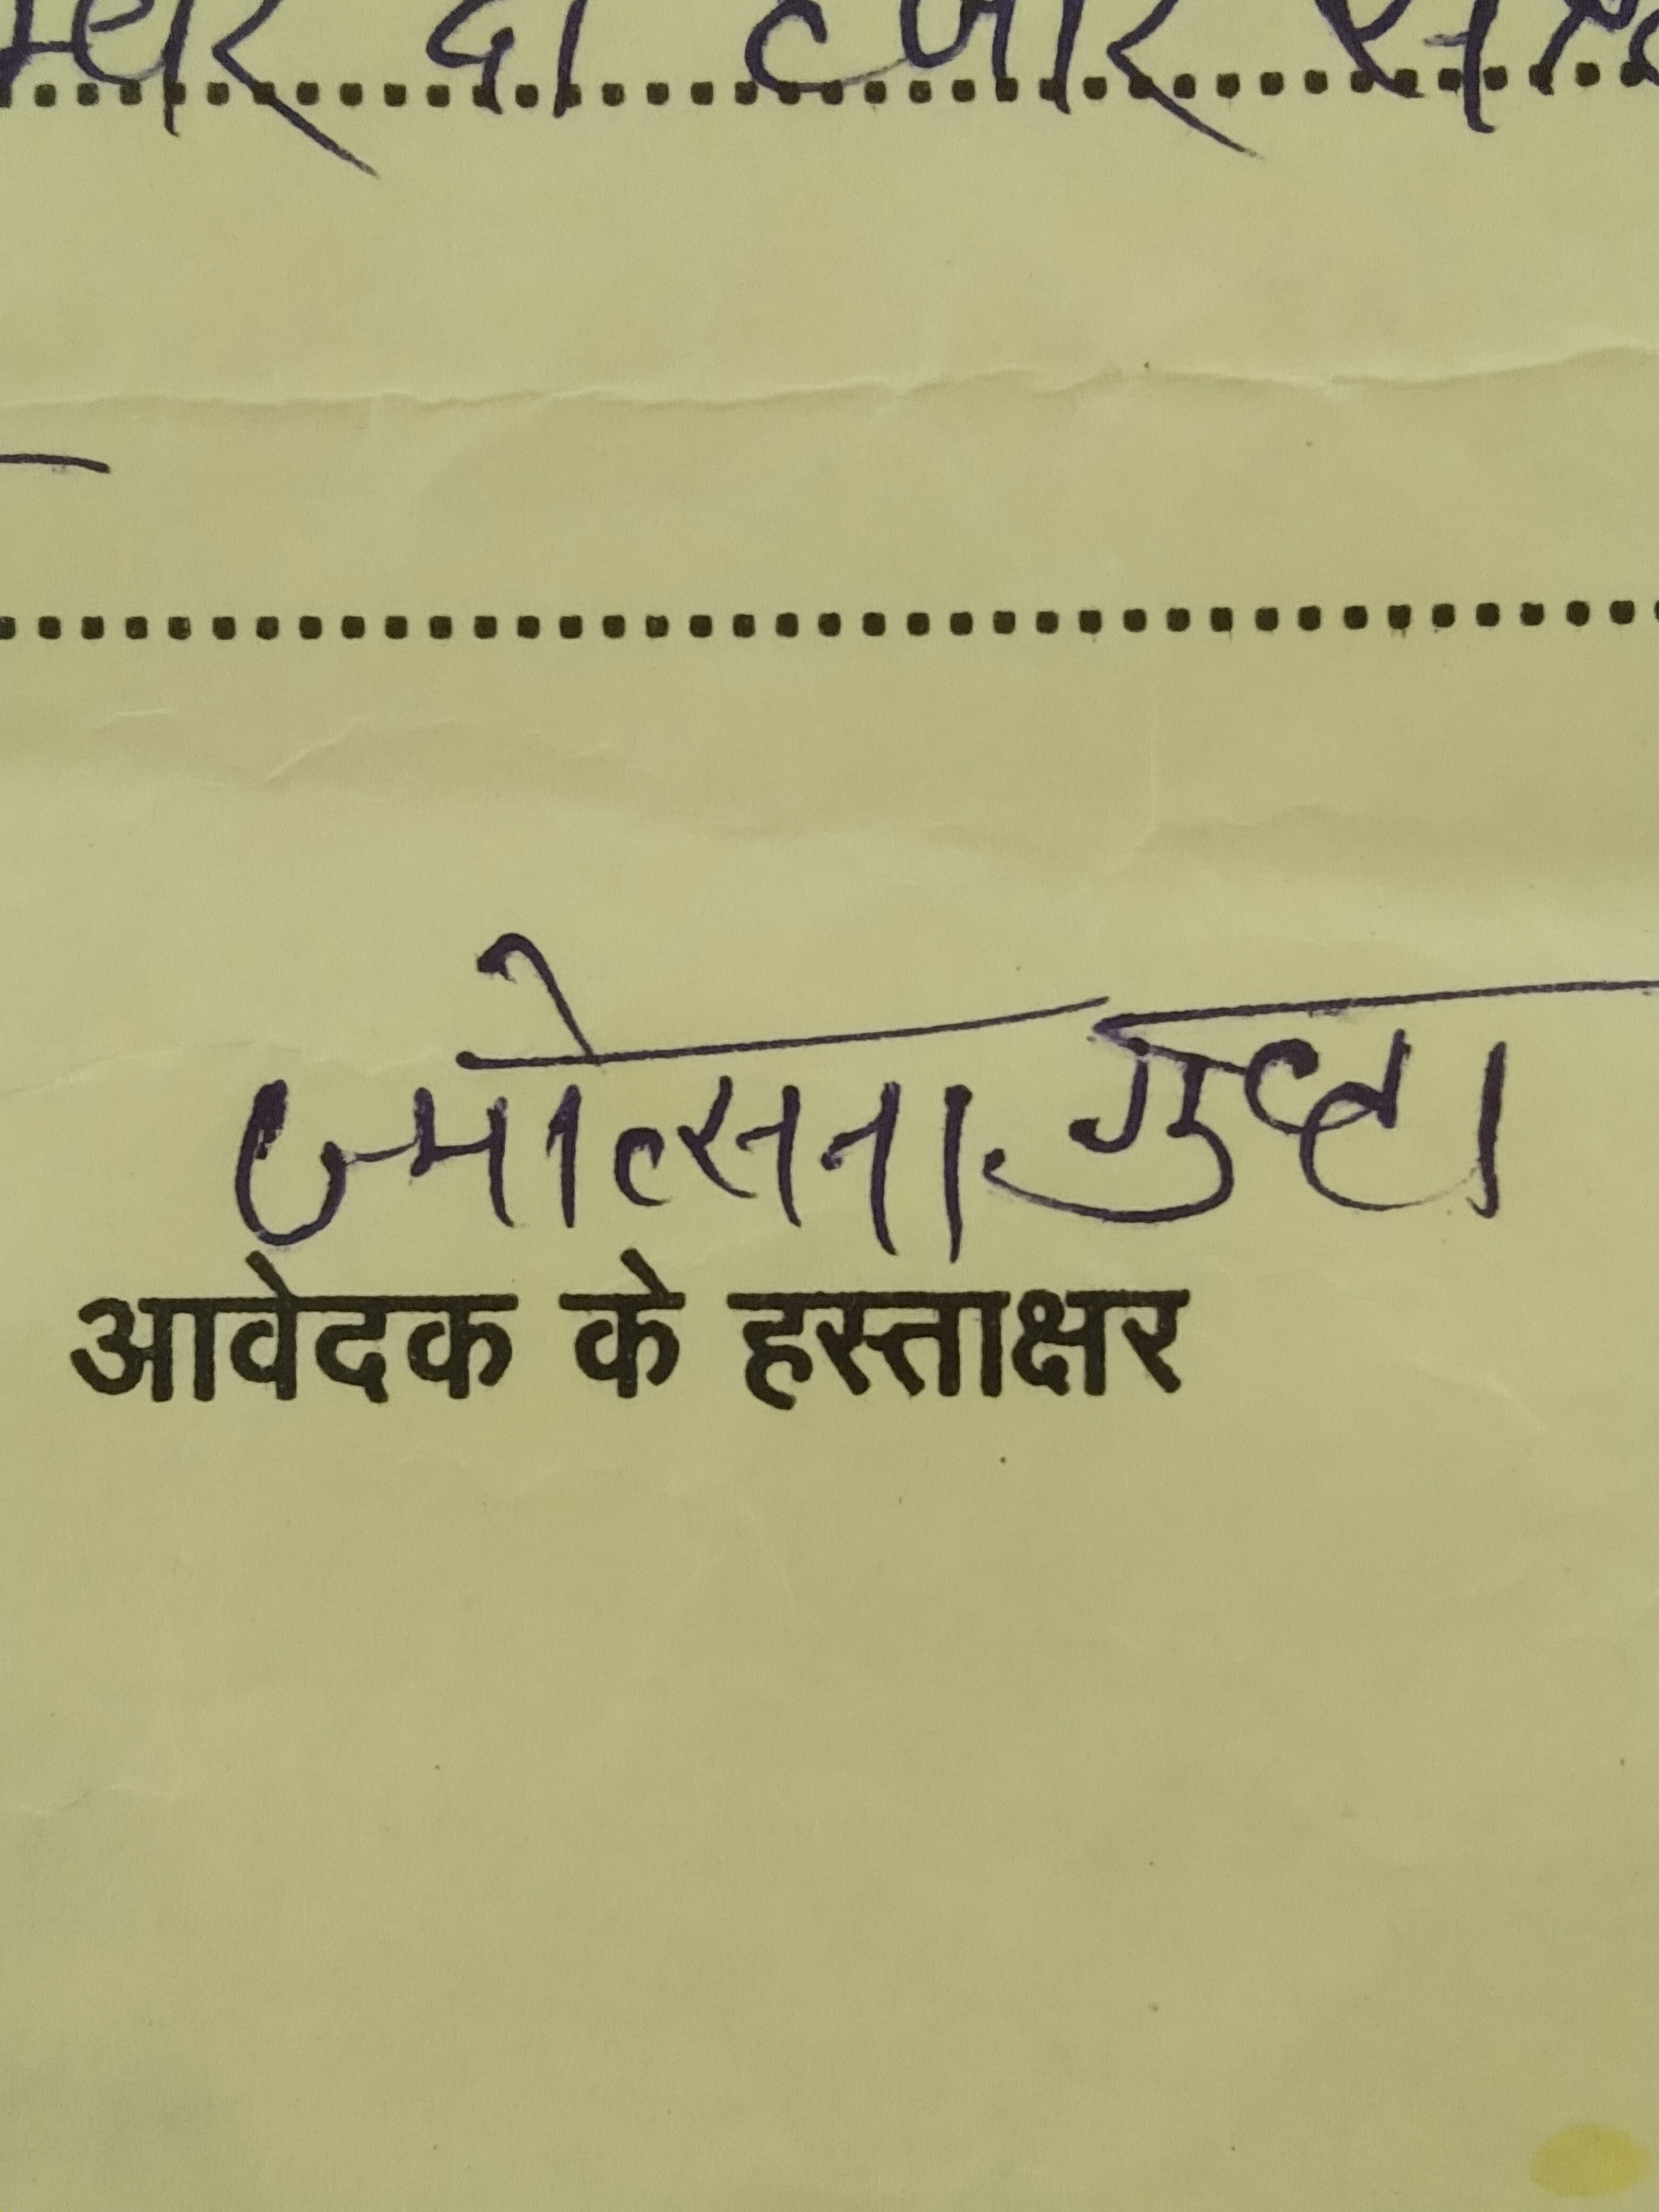 दो हजार
ज्योत्सना गुप्ता
आवेदक के हस्ताक्षर